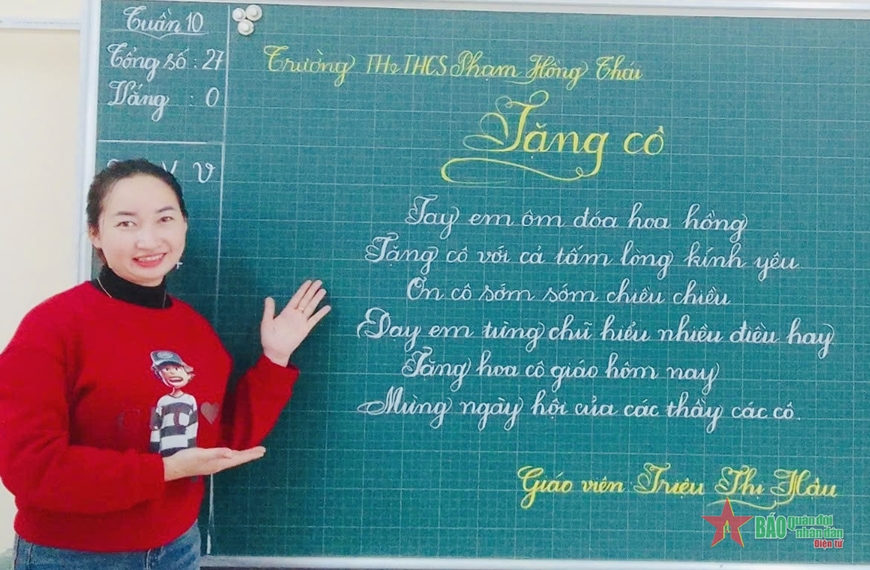 Tuần 10
Tổng số : 27
Vắng : 0
V v
Trường TH&THCS Phạm Hồng Thái
Tặng cô
Tay em ôm đóa hoa hồng
Tặng cô với cả tấm lòng kính yêu
Ơn cô sớm sớm chiều chiều
Dạy em từng chữ hiểu nhiều điều hay
Tặng hoa cô giáo hôm nay
Mừng ngày hội của các thầy các cô.
Giáo viên Triệu Thị Hậu
BÁO quân đội nhân dân
Điện tử